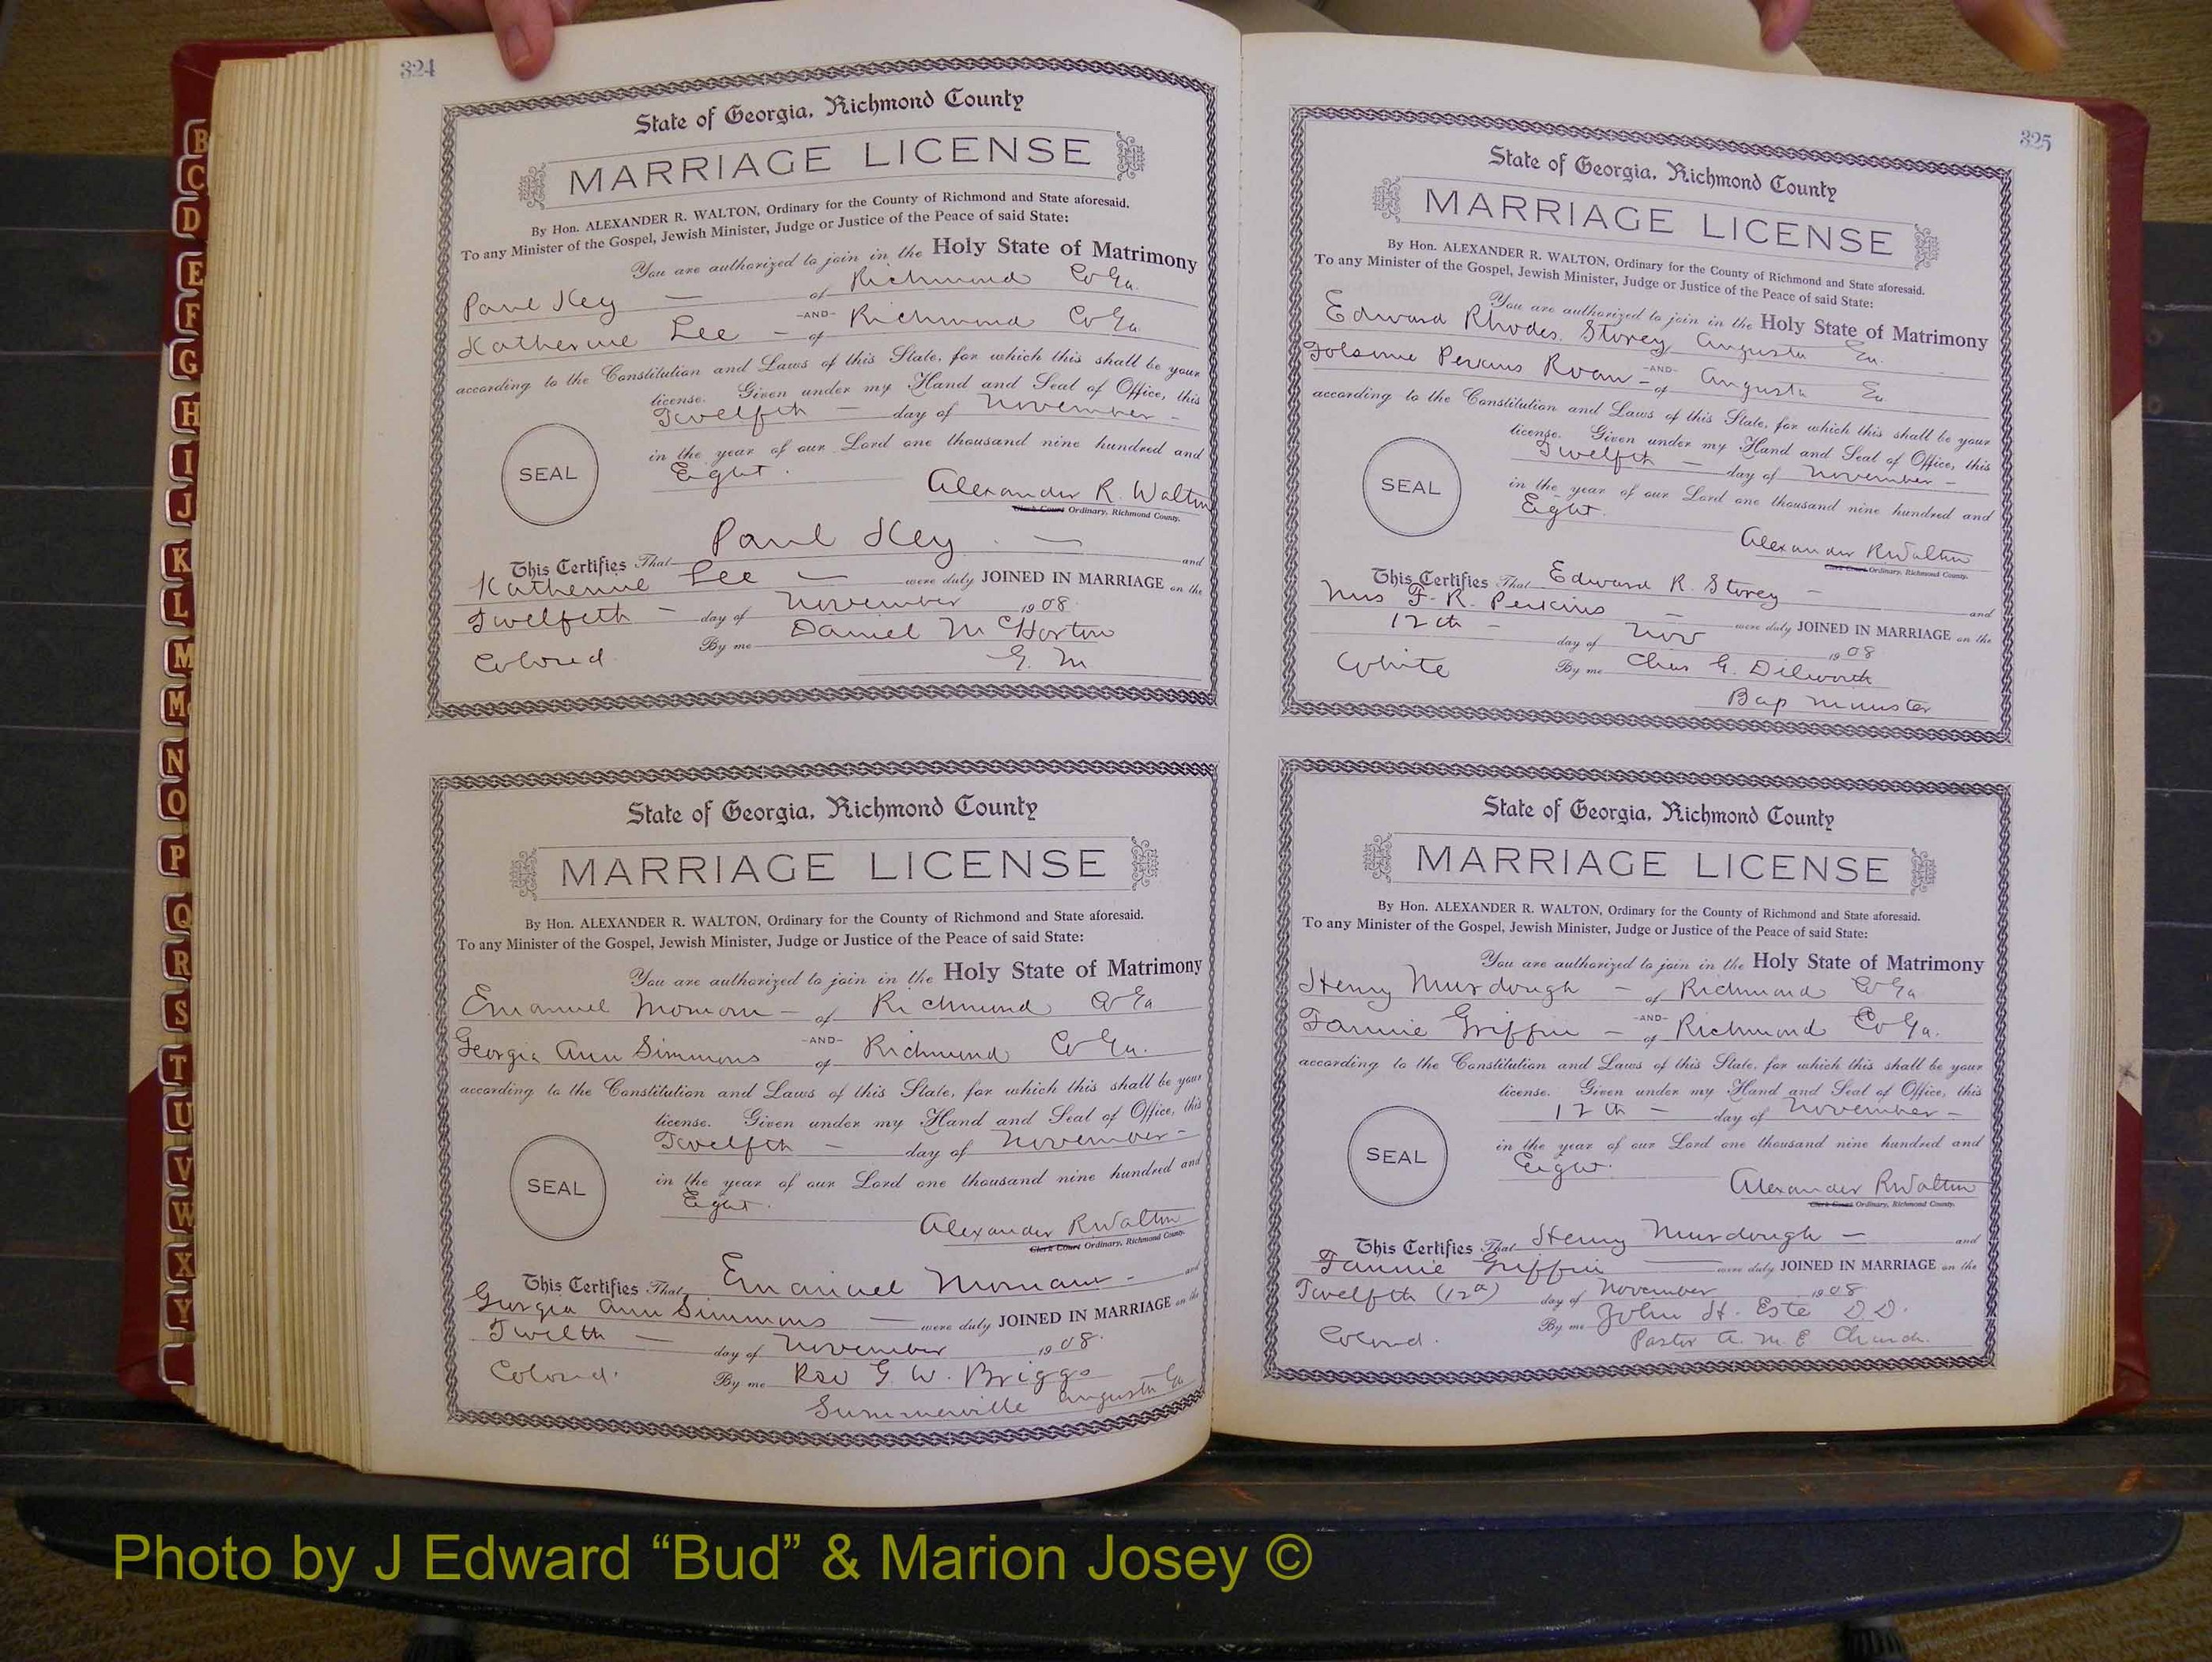 324
State of Georgia, Richmond County
MARRIAGE LICENSE
By Hon. ALEXANDER R. WALTON, Ordinary for the County of Richmond and State aforesaid.
To any Minister of the Gospel, Jewish Minister, Judge or Justice of the Peace of said State:
You are authorized to join in the Holy State of Matrimony
Paul Key — of Richmond Co Ga.
-AND-
Katherine Lee — of Richmond Co Ga
according to the Constitution and Laws of this State, for which this shall be your
license. Given under my Hand and Seal of Office, this
Twelfth — day of November —
in the year of our Lord one thousand nine hundred and
Eight.
SEAL
Alexander R. Walton
Clerk Court Ordinary, Richmond County.
This Certifies That Paul Key — and
Katherine Lee — were duly JOINED IN MARRIAGE on the
Twelfeth — day of November 1908
Colored. By me Daniel McHorton
G. M
State of Georgia, Richmond County
MARRIAGE LICENSE
By Hon. ALEXANDER R. WALTON, Ordinary for the County of Richmond and State aforesaid.
To any Minister of the Gospel, Jewish Minister, Judge or Justice of the Peace of said State:
You are authorized to join in the Holy State of Matrimony
Emanuel — of Richmond Co Ga
-AND-
Georgia Ann Simmons of Richmond Co Ga.
according to the Constitution and Laws of this State, for which this shall be your
license. Given under my Hand and Seal of Office, this
Twelfth — day of November —
in the year of our Lord one thousand nine hundred and
Eight.
SEAL
Alexander R Walton
Clerk Court Ordinary, Richmond County.
This Certifies That Emanuel — and
Georgia Ann Simmons — were duly JOINED IN MARRIAGE on the
Twelth — day of November 1908.
Colored. By me Rev G. W. Briggs
Summerville Augusta Ga
325
State of Georgia, Richmond County
MARRIAGE LICENSE
By Hon. ALEXANDER R. WALTON, Ordinary for the County of Richmond and State aforesaid.
To any Minister of the Gospel, Jewish Minister, Judge or Justice of the Peace of said State:
You are authorized to join in the Holy State of Matrimony
Edward Rhodes Storey Augusta Ga.
-AND-
Perkins — of Augusta Ga
according to the Constitution and Laws of this State, for which this shall be your
license. Given under my Hand and Seal of Office, this
Twelfth — day of November —
in the year of our Lord one thousand nine hundred and
Eight.
SEAL
Alexander R Walton
Clerk Court Ordinary, Richmond County.
This Certifies That Edward R. Storey — and
Mrs F. R. Perkins — were duly JOINED IN MARRIAGE on the
12th — day of Nov 1908
White By me Chas G. Dilworth
Bap Minister
State of Georgia, Richmond County
MARRIAGE LICENSE
By Hon. ALEXANDER R. WALTON, Ordinary for the County of Richmond and State aforesaid.
To any Minister of the Gospel, Jewish Minister, Judge or Justice of the Peace of said State:
You are authorized to join in the Holy State of Matrimony
Henry Murdough — of Richmond Co Ga
-AND-
Fannie Griffin — of Richmond Co Ga.
according to the Constitution and Laws of this State, for which this shall be your
license. Given under my Hand and Seal of Office, this
12th — day of November —
in the year of our Lord one thousand nine hundred and
Eight.
SEAL
Alexander R Walton
Clerk Court Ordinary, Richmond County.
This Certifies That Henry Murdough — and
Fannie Griffin — were duly JOINED IN MARRIAGE on the
Twelfth (12th) day of November 1908
By me John H. Este D.D.
Colored. Pastor A. M. E Church.
B
C
D
E
F
G
H
I
J
K
L
M
M
N
O
P
Q
R
S
T
U
V
W
X
Y
Photo by J Edward “Bud” & Marion Josey ©